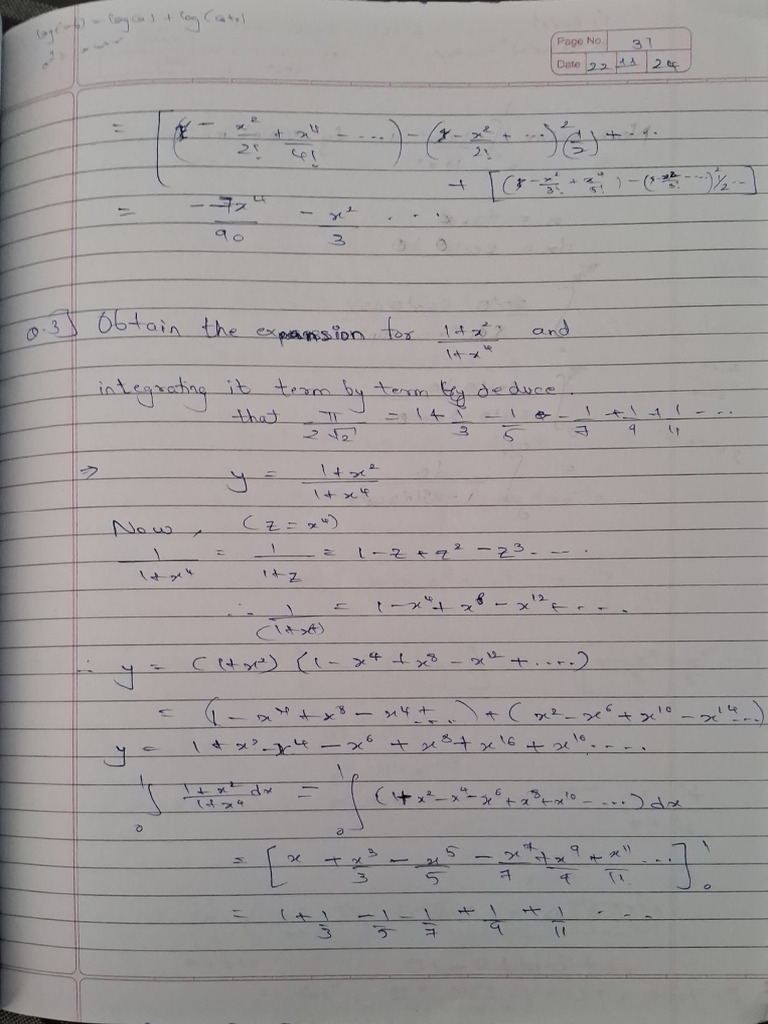 Page No. 37
Date 22 11 24
= [(1 - x²/2! + x⁴/4! - ....) - (1 - x²/2! + ...)² (1/2) + ...
+ [(1 - x²/3! + x⁴/5! ) - (1 - x²/3! ...)² 1/2 ...]
= -7x⁴/90 - x²/3 ....
Q.3] Obtain the expansion for (1+x²)/(1+x⁴) and
integrating it term by term by deduce.
that π/2√2 = 1 + 1/3 - 1/5 - 1/7 + 1/9 + 1/11 ...
⇒ y = (1+x²)/(1+x⁴)
Now, (z = x⁴)
1/(1+x⁴) = 1/(1+z) = 1 - z + z² - z³ ....
∴ 1/(1+x⁴) = 1 - x⁴ + x⁸ - x¹² + ....
∴ y = (1+x²) (1 - x⁴ + x⁸ - x¹² + ....)
= (1 - x⁴ + x⁸ - x⁴ + ....) + (x² - x⁶ + x¹⁰ - x¹⁴ ...)
y = 1 + x² - x⁴ - x⁶ + x⁸ + x¹⁶ + x¹⁰ ....
∫₀¹ (1+x²)/(1+x⁴) dx = ∫₀¹ (1 + x² - x⁴ - x⁶ + x⁸ + x¹⁰ - ....) dx
= [x + x³/3 - x⁵/5 - x⁷/7 + x⁹/9 + x¹¹/11 ...]₀¹
= 1 + 1/3 - 1/5 - 1/7 + 1/9 + 1/11 ....